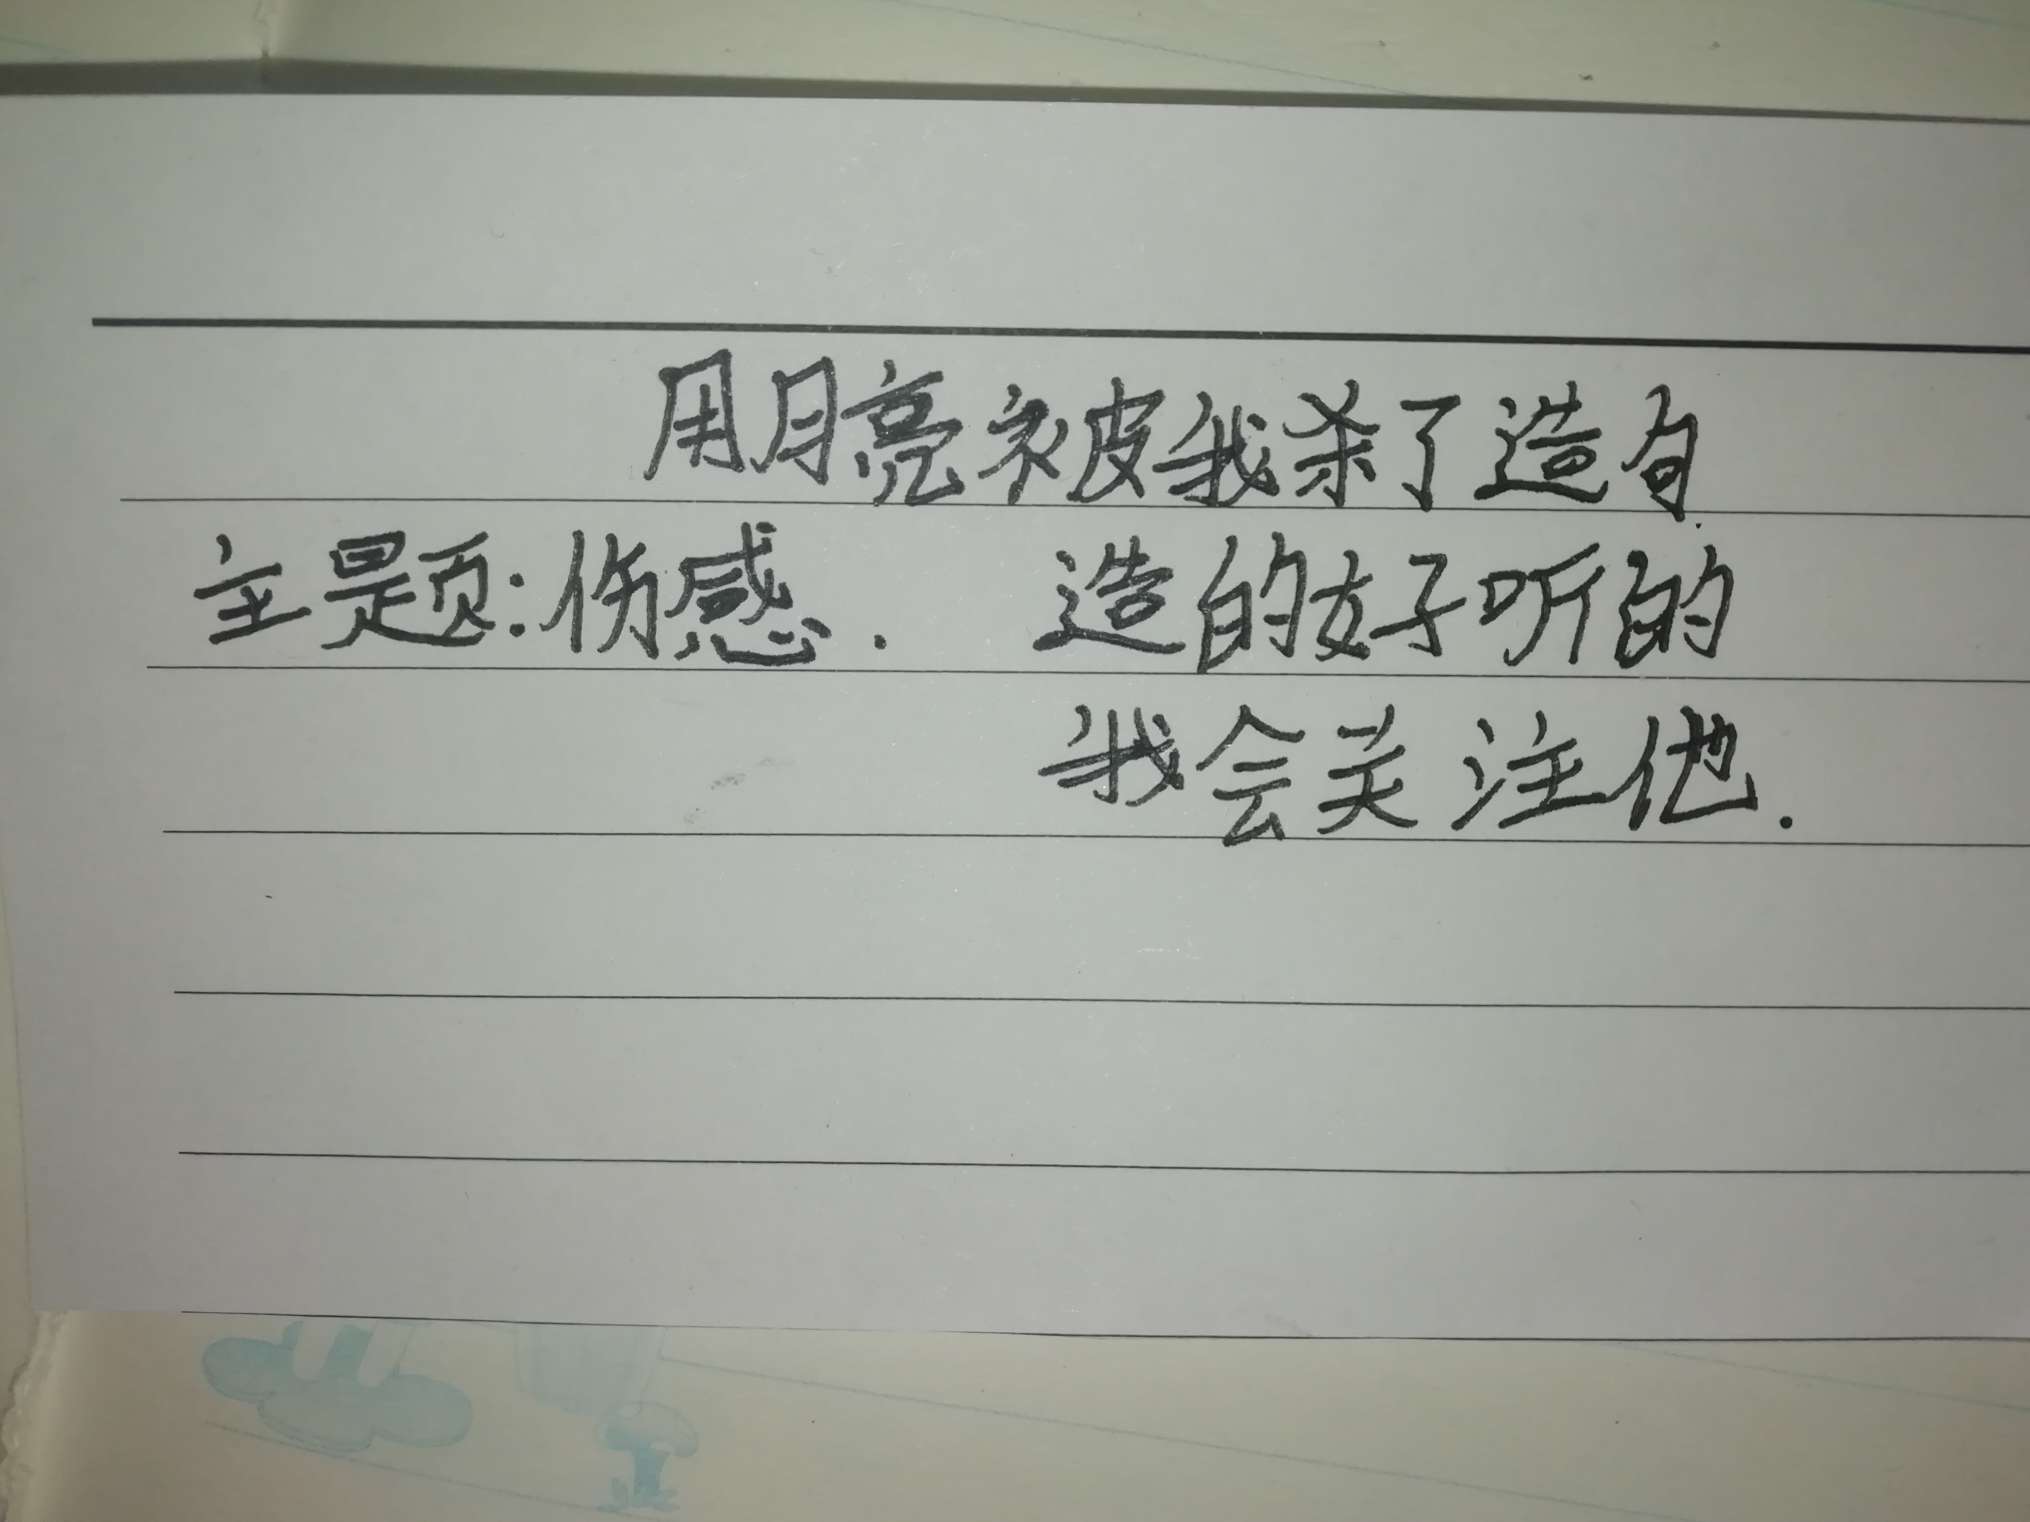 用月亮被我杀了造句
主题:伤感. 造的好听的
我会关注他.